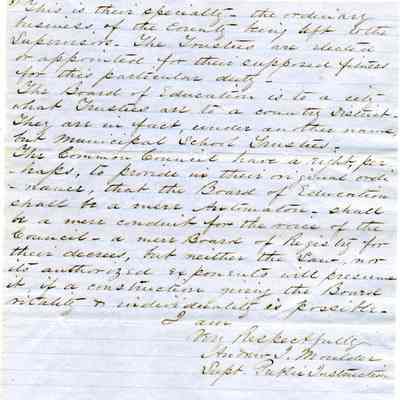 This is their specialty - the ordinary
business of the County being left to the
Supervisors. The Trustees are elected
or appointed for their supposed fitness
for this particular duty
The Board of Education is to a city
what Trustees are to a country District.
They are in fact, under another name,
but Municipal School Trustees.
The Common Council have a right, per-
haps, to provide in their original ordi-
-nance, that the Board of Education
shall be a mere Automaton - shall
be a mere conduit for the voice of the
Council - a mere Board of Registry for
their decrees, but neither the Law, nor
its authorized exponents will presume
it, if a construction giving the Board
vitality & individuality is possible.
I am
Very Respectfully
Andrew J. Moulder
Supt Public Instruction